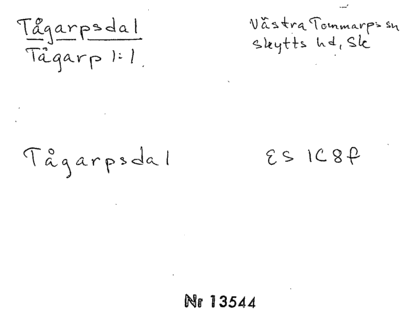 Tågarpsdal
Tågarp 1:1.
Västra Tommarps sn
Skytts hd, Sk
Tågarpsdal
ES 1C8f
Nr 13544